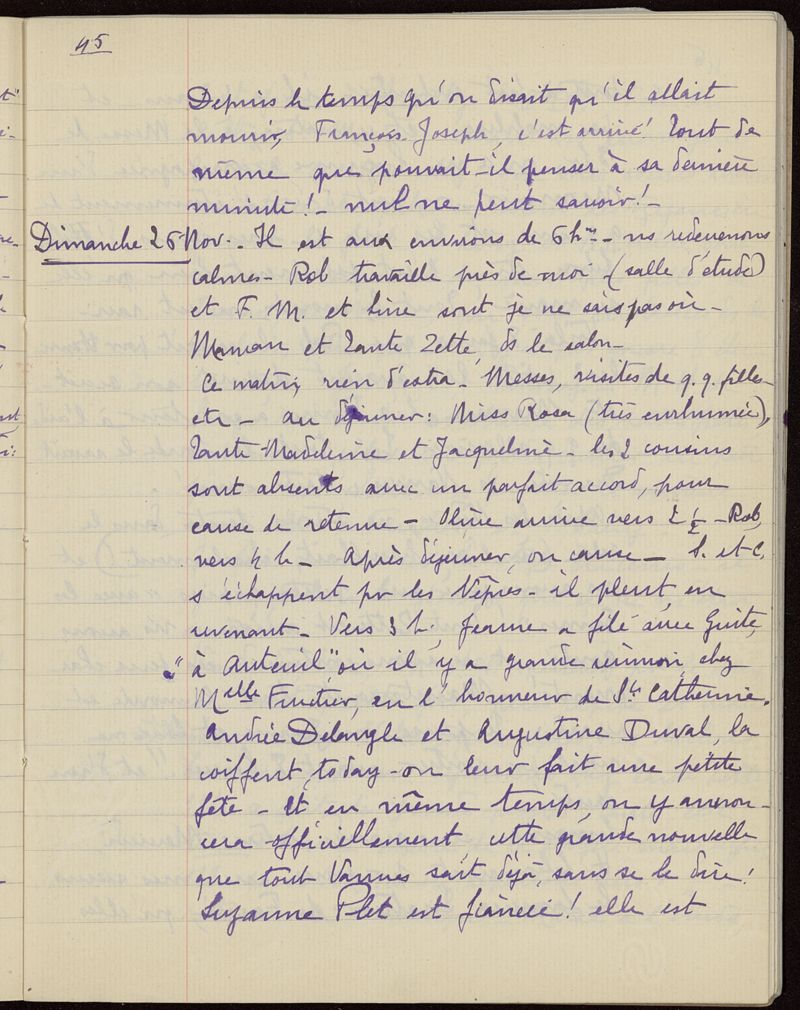 45
Depuis le temps qu'on disait qu'il allait
mourir, François-Joseph, c'est arrivé! Tout de
même que pouvait-il penser à sa dernière
minute! - nul ne peut savoir! -
Dimanche 26 Nov. - Il est aux environs de 6 h - ns redevenons
calmes - Rob travaille près de moi - (salle d'étude)
et F. M. et Line sont je ne sais pas où -
Maman et Tante Zette, ds le salon -
Ce matin, rien d'extra - Messes, visites de q.q. filles -
etc - au déjeuner: Miss Rosa (très enrhumée),
Tante Madeleine et Jacqueline - les 2 cousins
sont absents avec un parfait accord, pour
cause de retenue - Olive arrive vers 2 ½ - Rob,
vers 4 h - Après déjeuner, on cause - S. et C.
s'échappent pr les Vêpres - il pleut en
revenant - Vers 3 h, Jeanne a filé avec Guite,
"à Auteuil", où il y a grande réunion, chez
Melle , en l'honneur de Ste Catherine.
Andrée Delangle et Augustine Duval, la
coiffent, today - on leur fait une petite
fête - Et en même temps, on y annon-
cera officiellement cette grande nouvelle
que tout Vannes sait déjà, sans se le dire!
Suzanne Plet est fiancée! elle est